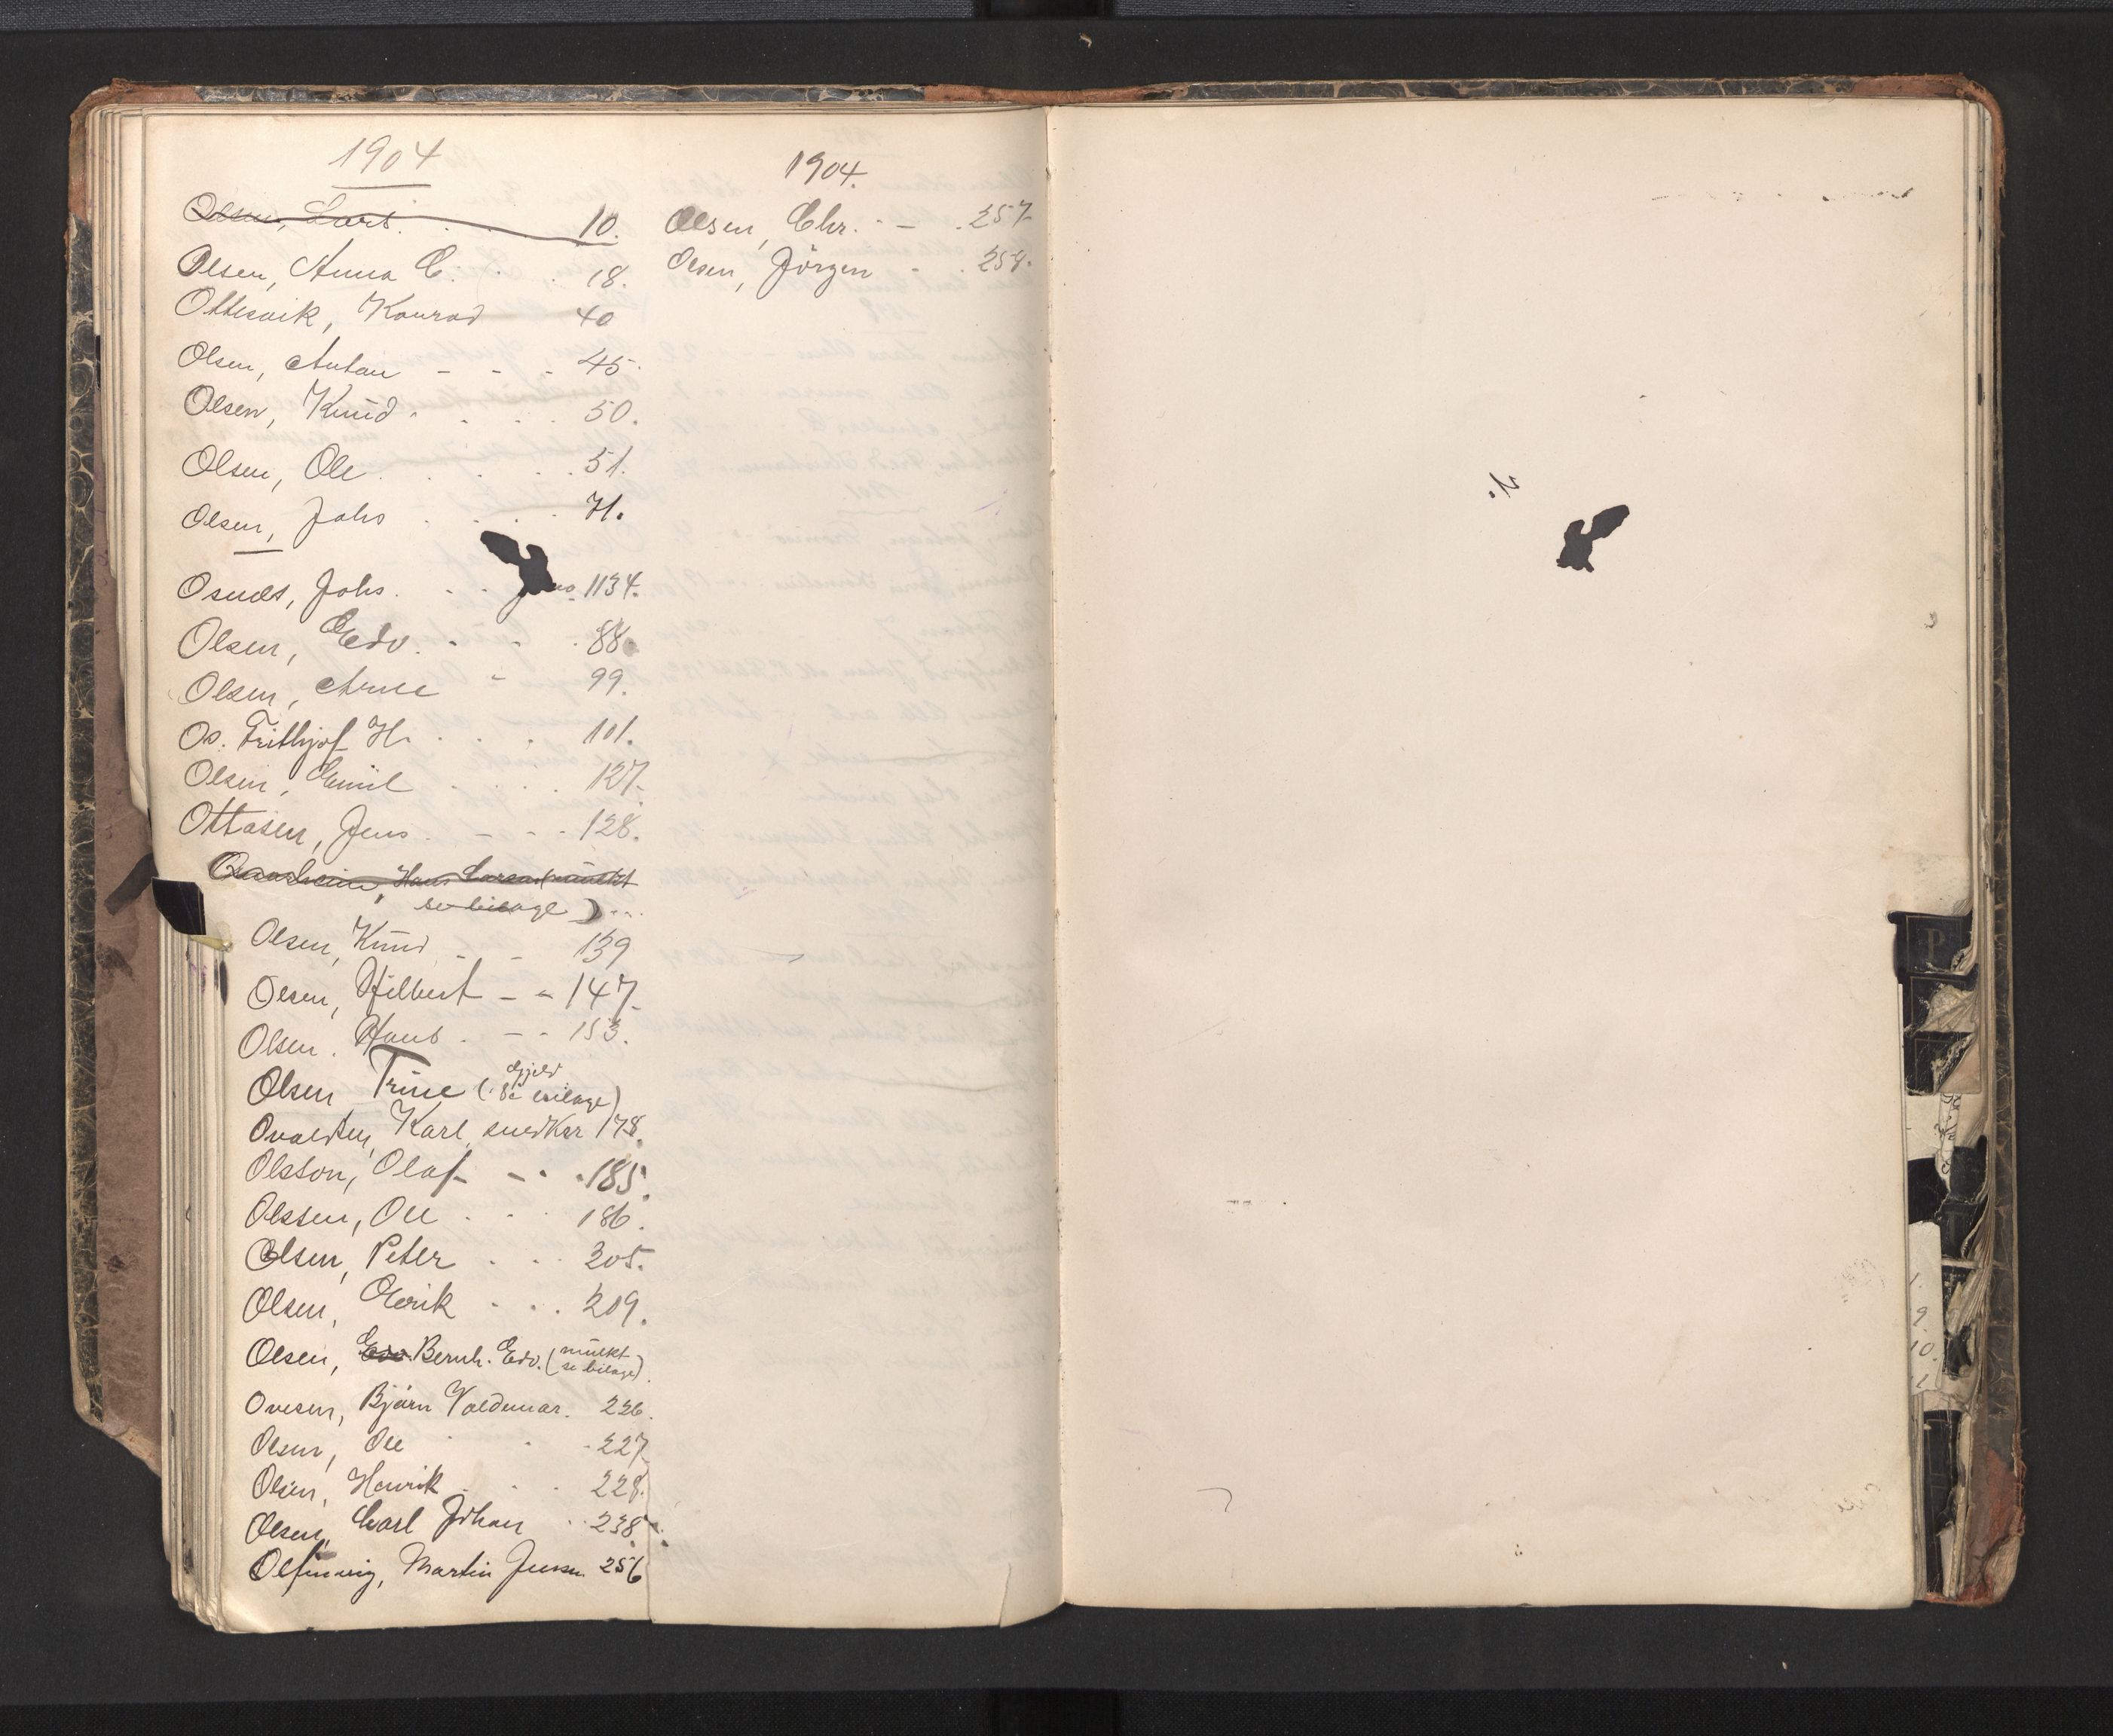 1904
Olsen, Lars. 10.
Olsen, Anna C. 18.
Ottesvik, Konrad 40
Olsen, Anton - - - 45.
Olsen, Knud 50.
Olsen, Ole 51.
Olsen, Johs 71.
Osnæs, Johs. 1134.
Olsen, Edv. 88.
Olsen, Arne 99.
Os. Frithjof H. 101.
Olsen, Emil 127.
Ottasen, Jens 128.
Hans Larsen (mulkt
se bilage)
Olsen, Knud - - 139
Olsen, Hilbert - - 147.
Olsen. Hans - - 153.
Olsen Trine (Gjeld
se bilage)
Ovaldsen, Karl, snedker 178.
Olsson, Olaf - 185.
Olssen, Ole 186.
Olsen, Peter 205.
Olsen, Erik 209.
Olsen, Edv. Bernh. Edv. (mulkt
se bilage).
Ovesen, Bjarn Valdemar. 226.
Olsen, Ole 227
Olsen, Henrik 228.
Olsen, Carl Johan 238.
Martin Jensen 256
1904.
Olsen, Chr. - 257
Olsen, Jörgen - 258.
P